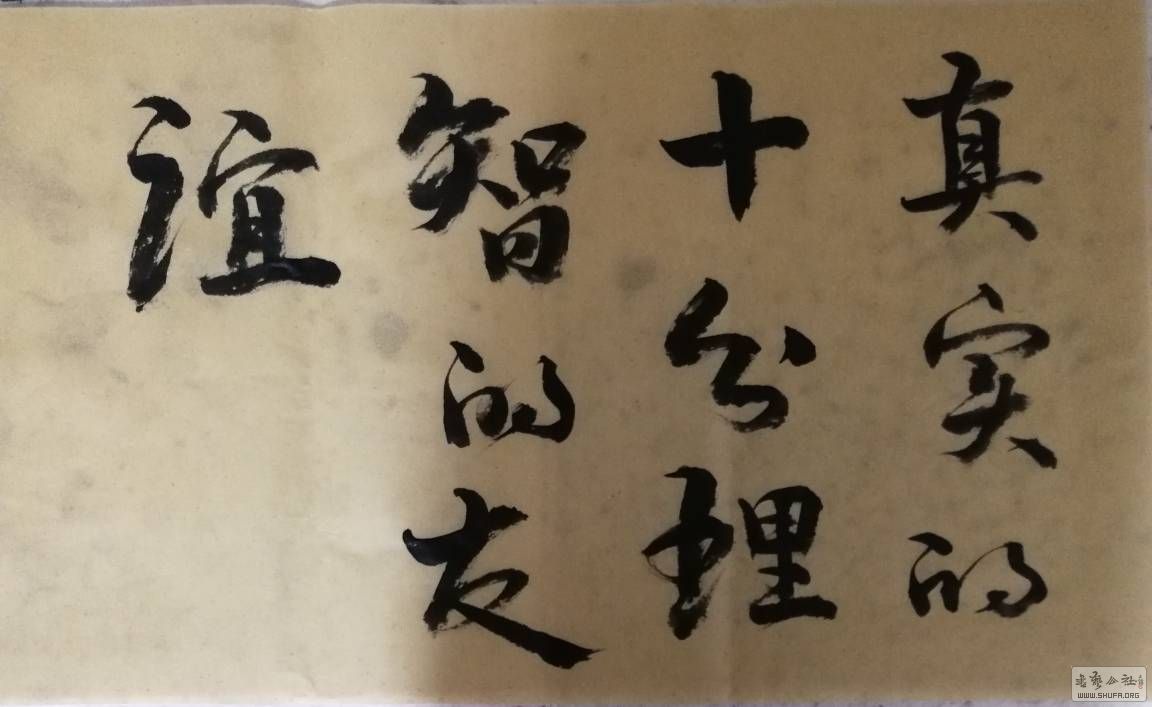 真实的
十分理
智的友
谊
书艺公社
WWW.SHUFA.ORG